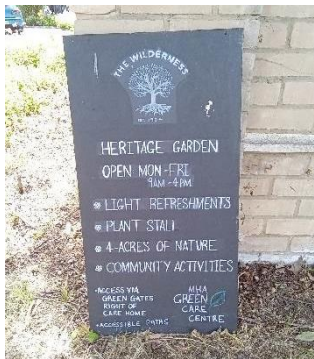 THE WILDERNESS
HERITAGE GARDEN
OPEN MON-FRI
9AM-4PM
* LIGHT REFRESHMENTS
* PLANT STALL
* 4-ACRES OF NATURE
* COMMUNITY ACTIVITIES
-ACCESS VIA
GREEN GATES
RIGHT OF
CARE HOME
-ACCESSIBLE PATHS
MHA
GREEN
CARE
CENTRE